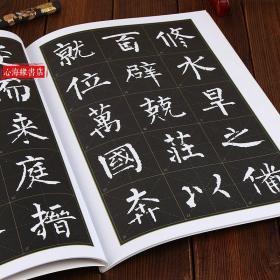 修水旱之備
百辟兢莊以
就位萬國奔
而来庭搢
沁海緣書店